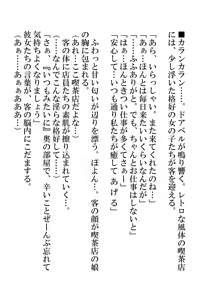 ■カランカラン……。ドアベルが鳴り響く。レトロな風体の喫茶店
には、少し浮いた格好の女の子たちが客を迎える。
「あぁ〜、いらっしゃい。また来てくれたのね……」
「あぁ〜ほんとは毎日来たいくらいなんだが……」
「……ふふありがと。ちゃんとお仕事はしないと」
「ああ〜ほんときつい仕事が多くてさぁー」
「安心して……いつも通り私たちが癒してあげる」
ふわっと甘い匂いが辺りを漂う。ぽよん……。客の顔が喫茶店の娘
の胸に包まれる。
（あれ？ここ喫茶店だよな……）
客の体に店員たちの素肌が擦り込まれていく……。
（……なんでみんなこんな淫らな格好してんだ……）
「さあ……『いつもみたいに』奥の部屋で、辛いことぜーんぶ忘れて
気持ちよくなりましょう」
彼女たちの言葉が、客の脳内にこだまする。
（あぁ……あぁぁあああ）